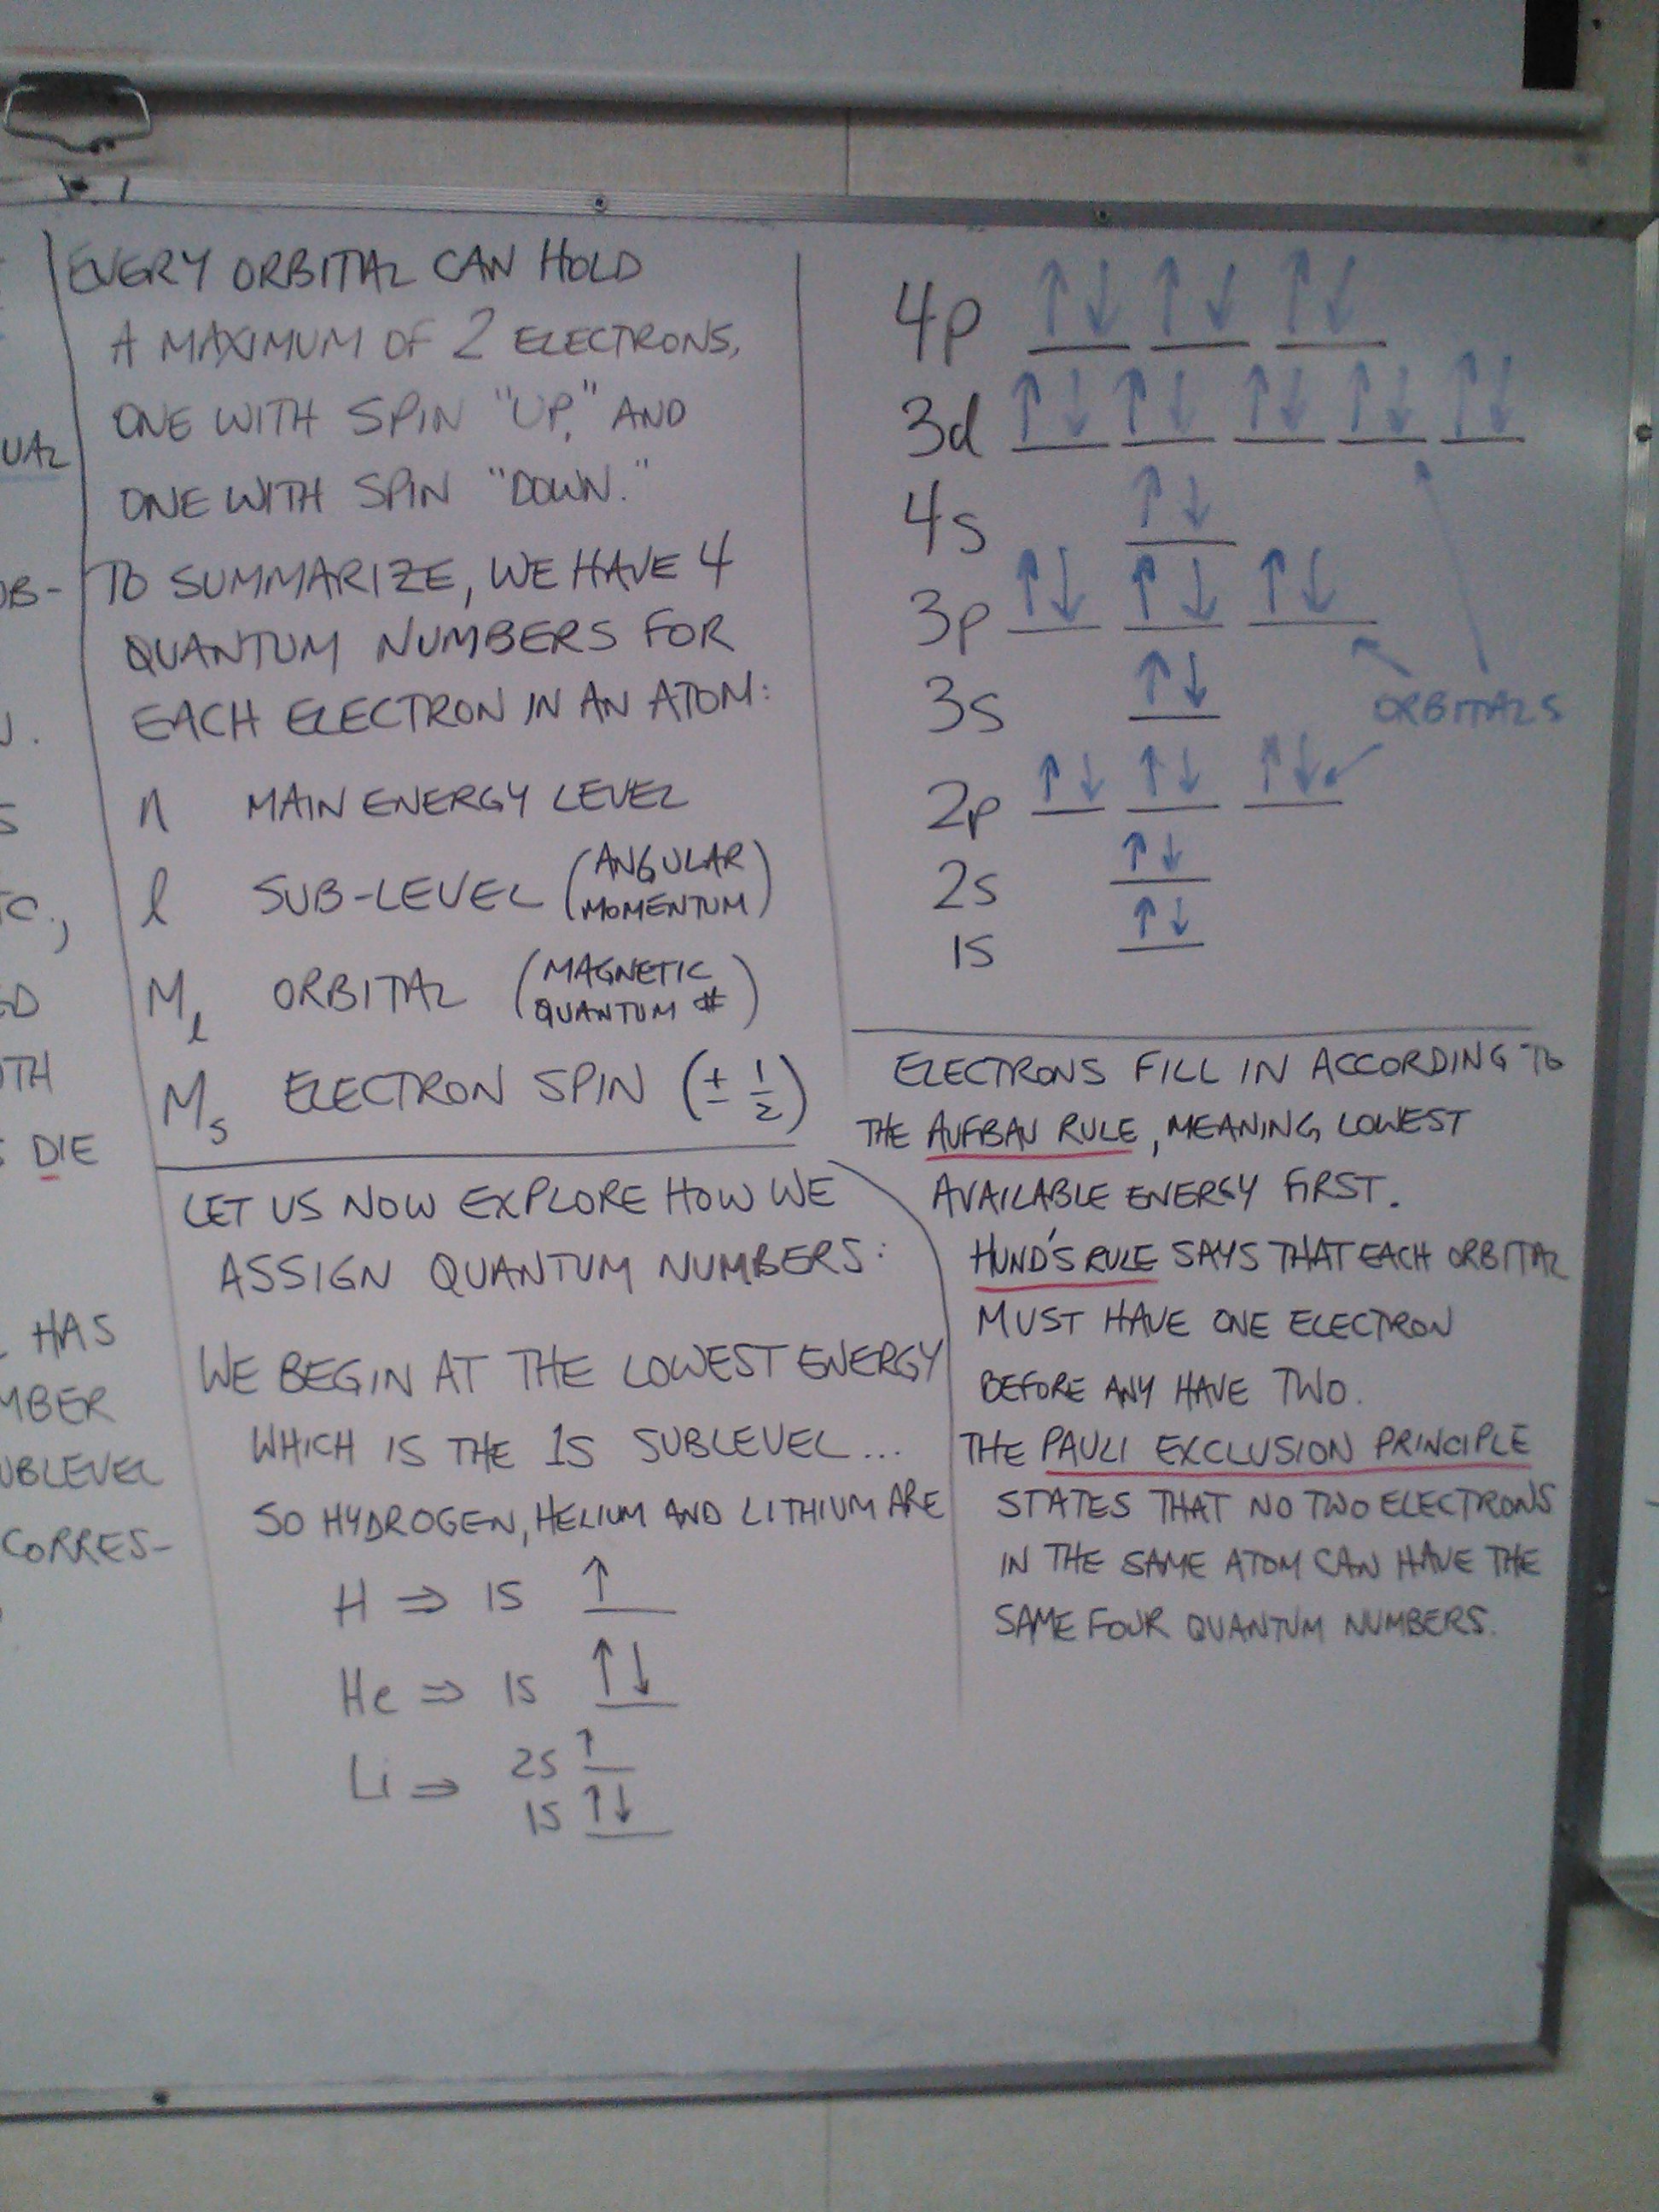 UAL
OB-
DIE
HAS
MBER
UBLEVEL
CORRES-
EVERY ORBITAL CAN HOLD
A MAXIMUM OF 2 ELECTRONS,
ONE WITH SPIN "UP," AND
ONE WITH SPIN "DOWN."
TO SUMMARIZE, WE HAVE 4
QUANTUM NUMBERS FOR
EACH ELECTRON IN AN ATOM:
n MAIN ENERGY LEVEL
l SUB-LEVEL (ANGULAR MOMENTUM)
Ml ORBITAL (MAGNETIC QUANTUM #)
Ms ELECTRON SPIN (± 1/2)
LET US NOW EXPLORE HOW WE
ASSIGN QUANTUM NUMBERS:
WE BEGIN AT THE LOWEST ENERGY
WHICH IS THE 1S SUBLEVEL...
SO HYDROGEN, HELIUM AND LITHIUM ARE
H ⇒ 1S ↑
He ⇒ 1S ↑↓
Li ⇒ 2S ↑
1S ↑↓
4p ↑↓ ↑↓ ↑↓
3d ↑↓ ↑↓ ↑↓ ↑↓ ↑↓
4s ↑↓
3p ↑↓ ↑↓ ↑↓
3s ↑↓
ORBITALS
2p ↑↓ ↑↓ ↑↓
2s ↑↓
1s ↑↓
ELECTRONS FILL IN ACCORDING TO
THE AUFBAU RULE, MEANING LOWEST
AVAILABLE ENERGY FIRST.
HUND'S RULE SAYS THAT EACH ORBITAL
MUST HAVE ONE ELECTRON
BEFORE ANY HAVE TWO.
THE PAULI EXCLUSION PRINCIPLE
STATES THAT NO TWO ELECTRONS
IN THE SAME ATOM CAN HAVE THE
SAME FOUR QUANTUM NUMBERS.